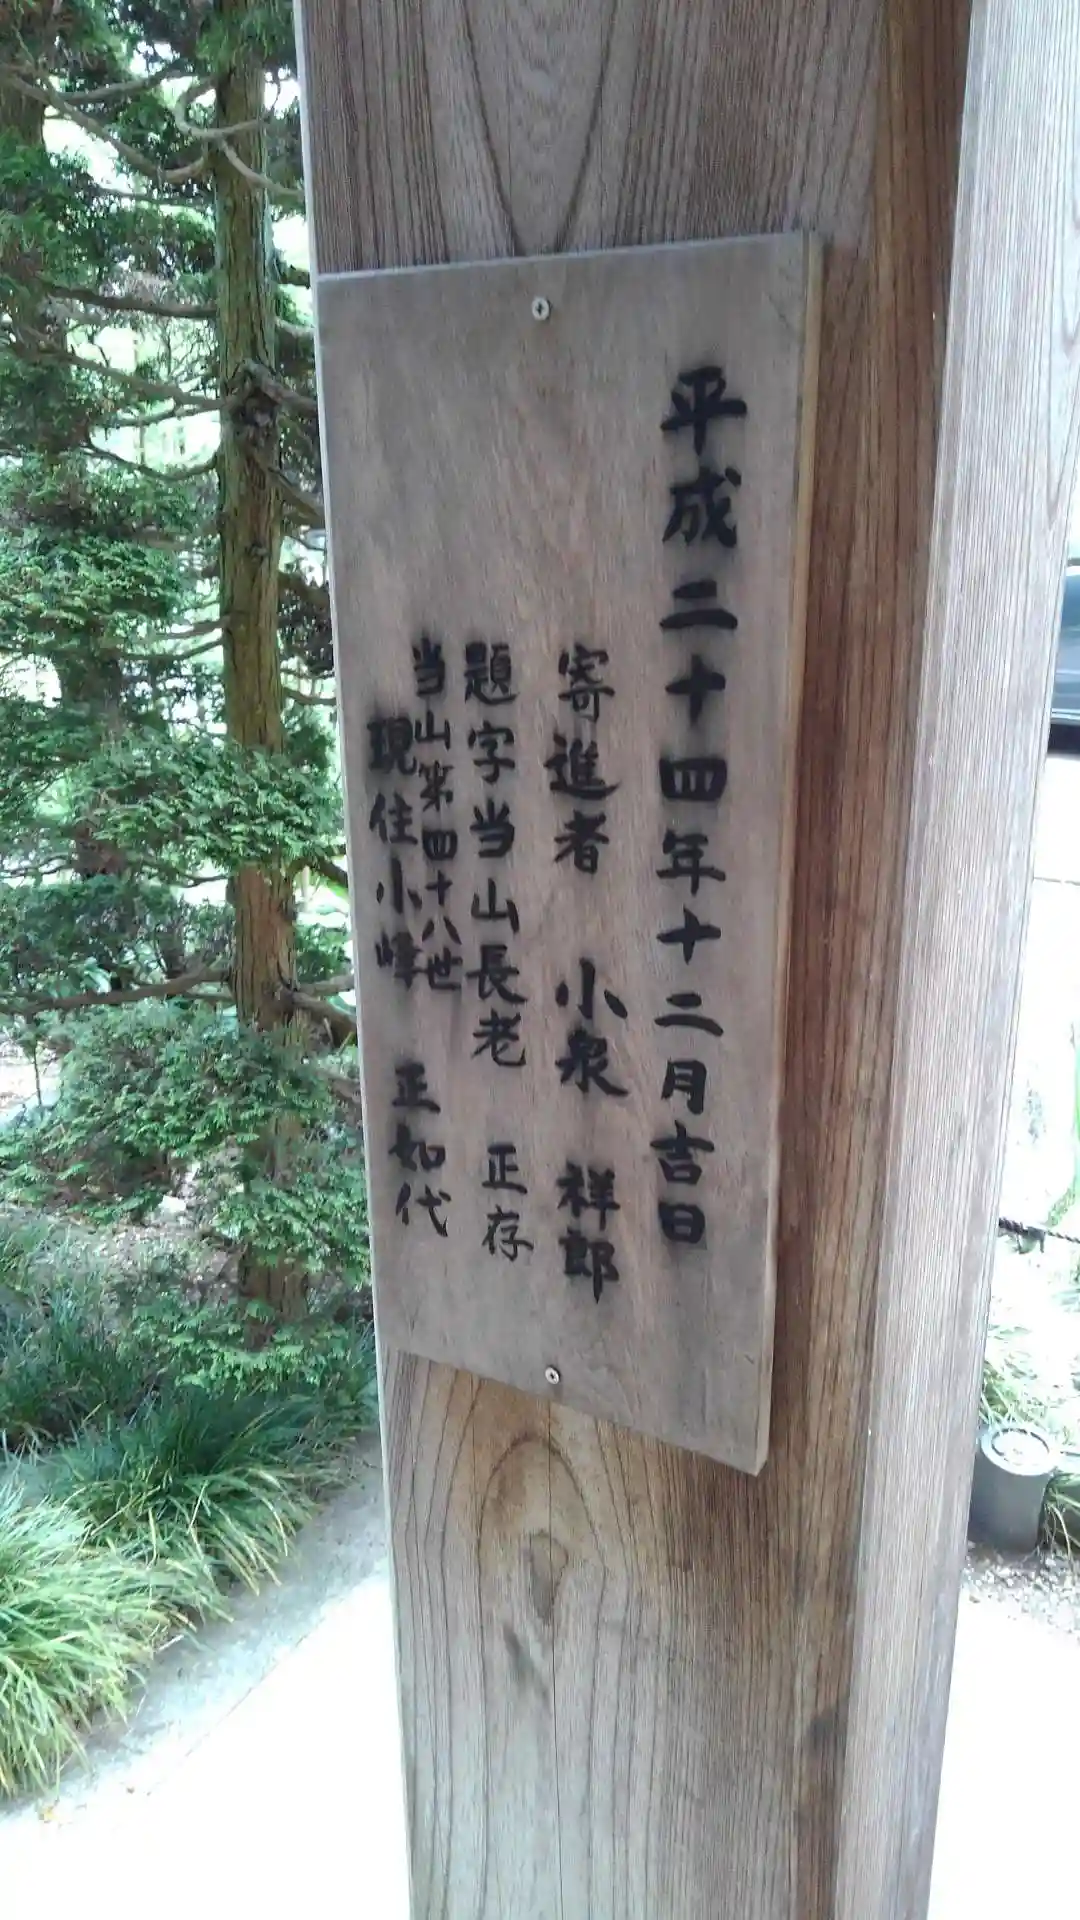 平成二十四年十二月吉日
寄進者 小泉 祥郎
題字当山長老 正存
当山第四十八世
現住小峰 正如代